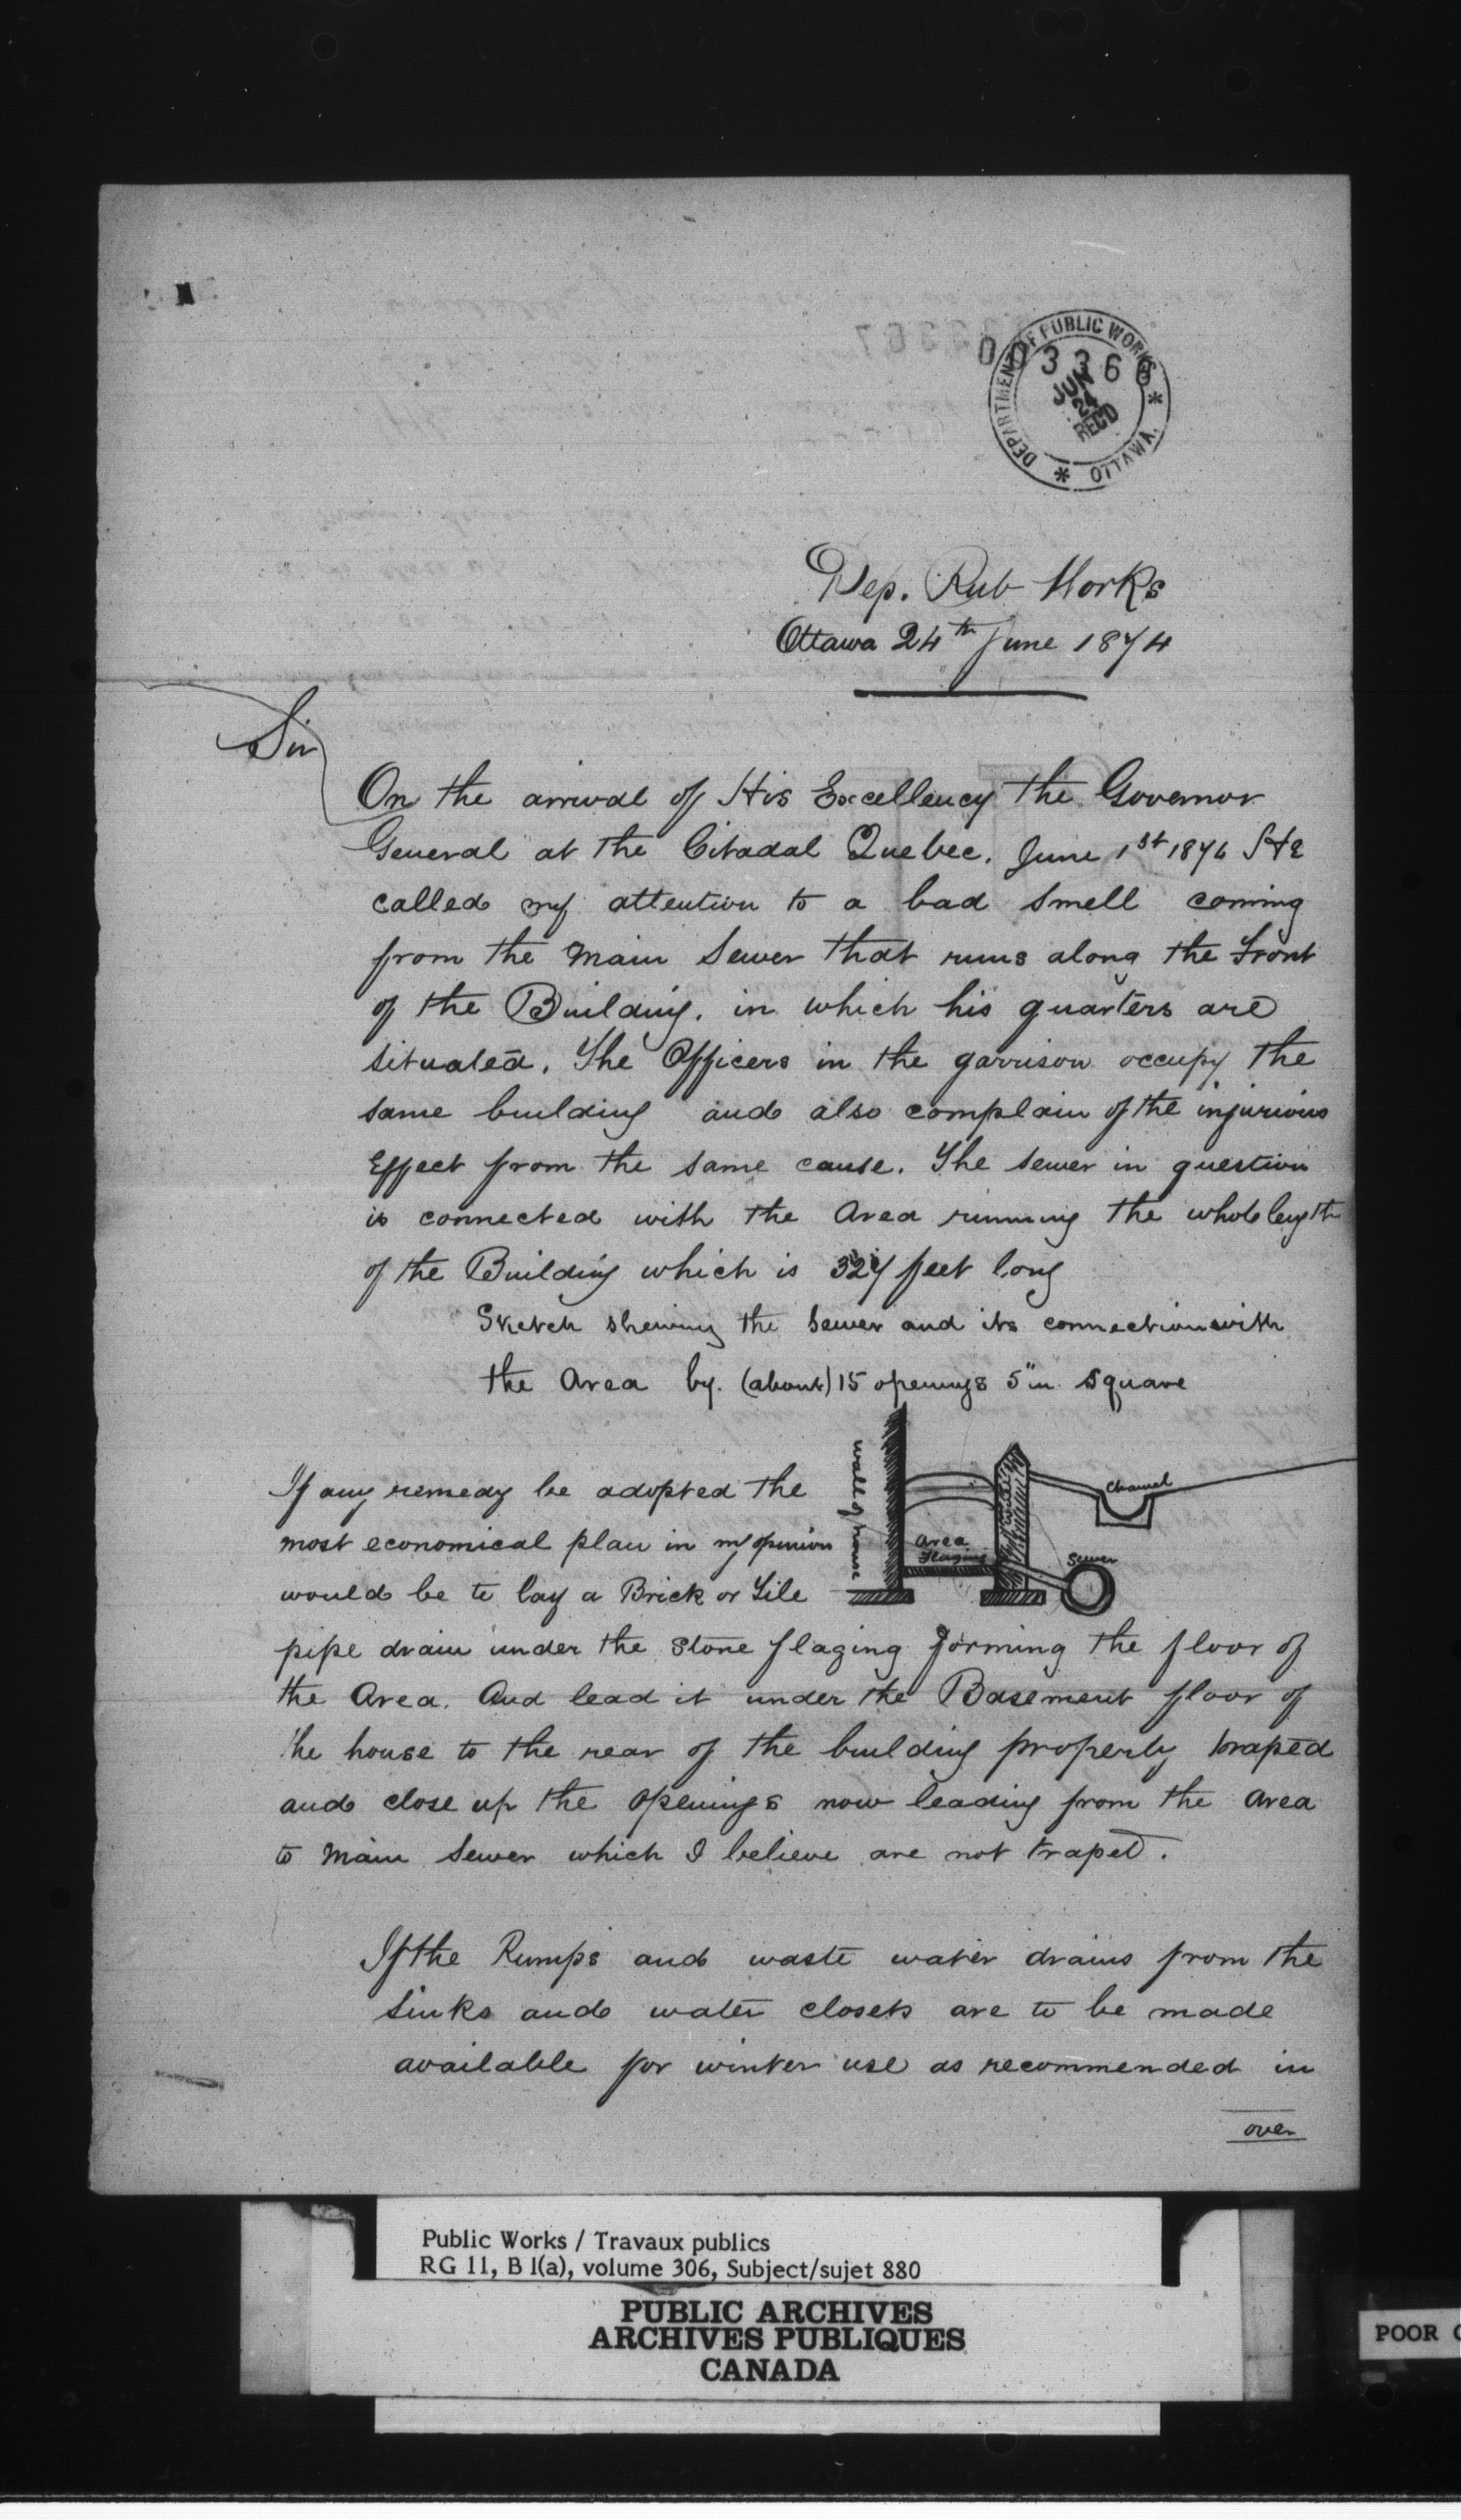 003366
DEPARTMENT OF PUBLIC WORKS
JUN
24
REC'D
* OTTAWA. *
Dep. Pub Works
Ottawa 24th June 1874
Sir
On the arrival of His Excellency the Governor
General at the Citadal Quebec. June 1st 1874 He
called my attention to a bad smell coming
from the main Sewer that runs along the Front
of the Building. in which his quarters are
situated. The Officers in the garrison occupy the
same building and also complain of the injurious
Effect from the same cause. The sewer in question
is connected with the Area running the whole length
of the Building which is 327 feet long
Sketch shewing the Sewer and its connection with
the Area by. (about) 15 openings 5" in square
wall of house
Channel
Area
Flaging
Sewer
If any remedy be adopted the
most economical plan in my opinion
would be to lay a Brick or Tile
pipe drain under the stone flaging forming the floor of
the Area. And lead it under the Basement floor of
the house to the rear of the building properly traped
and close up the openings now leading from the Area
to Main Sewer which I believe are not traped.
If the Pumps and waste water drains from the
sinks and water closets are to be made
available for winter use as recommended in
over
Public Works / Travaux publics
RG 11, B 1(a), volume 306, Subject/sujet 880
PUBLIC ARCHIVES
ARCHIVES PUBLIQUES
CANADA
POOR